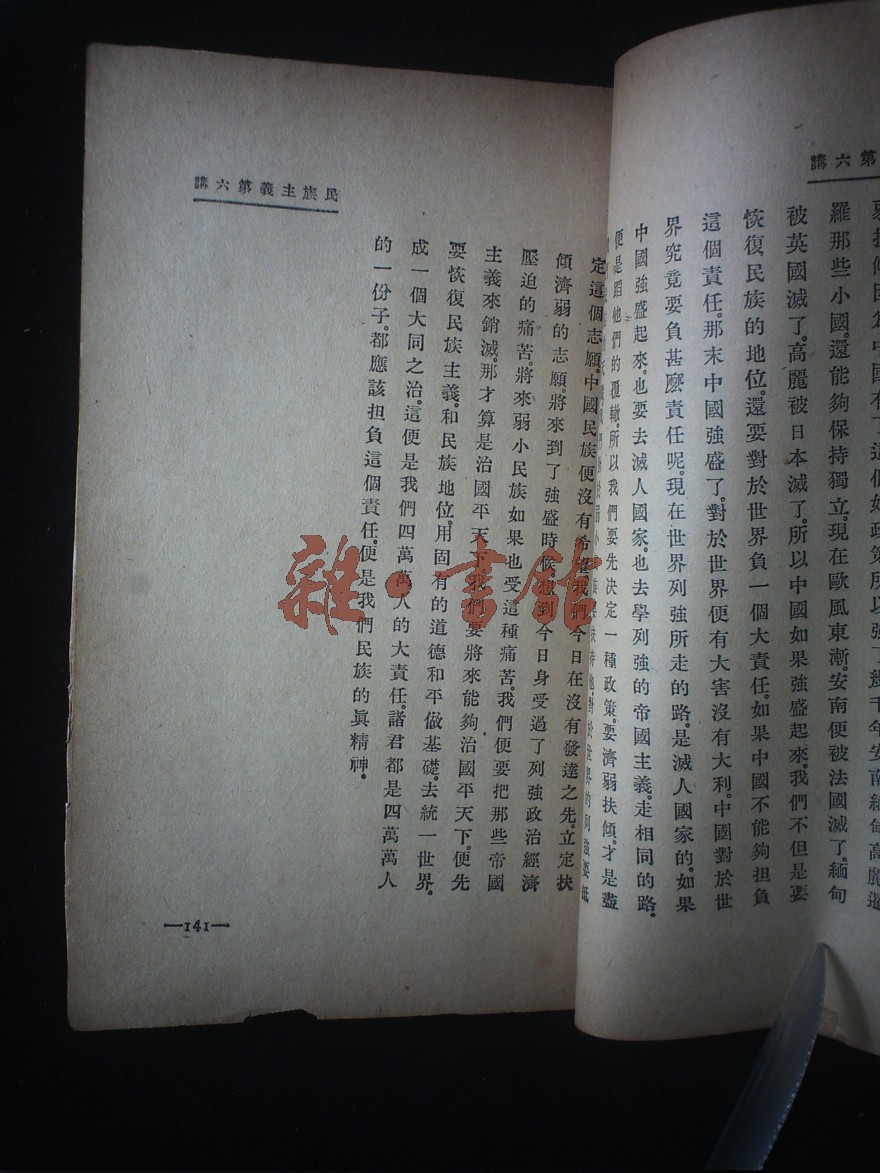 第六講
扶傾因爲中國有了這個好政策所以強了幾千年安南緬甸高麗暹
羅那些小國。還能夠保持獨立。現在歐風東漸。安南便被法國滅了。緬甸
被英國滅了。高麗被日本滅了。所以中國如果強盛起來。我們不但是要
恢復民族的地位。還要對於世界負一個大責任。如果中國不能夠担負
這個責任。那末中國強盛了。對於世界便有大害沒有大利。中國對於世
界究竟要負甚麽責任呢。現在世界列強所走的路。是滅人國家的。如果
中國強盛起來。也要去滅人國家。也去學列強的帝國主義。走相同的路。
便是蹈他們的覆轍。所以我們要先决定一種政策。要濟弱扶傾。才是盡
民族主義第六講
定這個志願。中國民族便沒有希望。我們今日在沒有發達之先。立定扶
傾濟弱的志願。將來到了強盛時候。想到今日身受過了列強政治經濟
壓迫的痛苦。將來弱小民族如果也受這種痛苦。我們便要把那些帝國
主義來銷滅。那才算是治國平天下。我們要將來能夠治國平天下。便先
要恢復民族主義。和民族地位。用固有的道德和平做基礎。去統一世界。
成一個大同之治。這便是我們四萬萬人的大責任。諸君都是四萬萬人
的一份子。都應該担負這個責任。便是我們民族的眞精神。
—141—
雜·書館